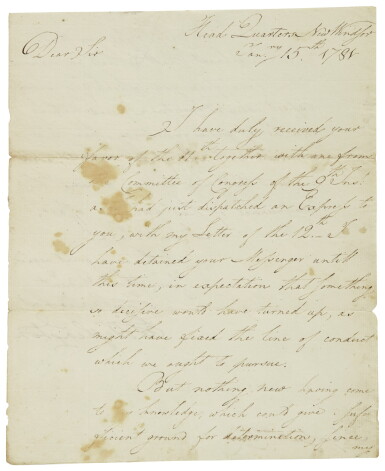 Head Quarters New Windsor
Jany 15th 1781
Dear Sir
I have duly received your
favor of the 11th together with one from
Committee of Congress of the 8th Inst
as I had just dispatched an Express to
you, with my Letter of the 12th I
have detained your Messenger untill
this time, in expectation that something
so decisive would have turned up, as
might have fixed the line of conduct
which we ought to pursue.
But nothing new having come
to my knowledge, which could give suf
ficient ground for determination, since
my